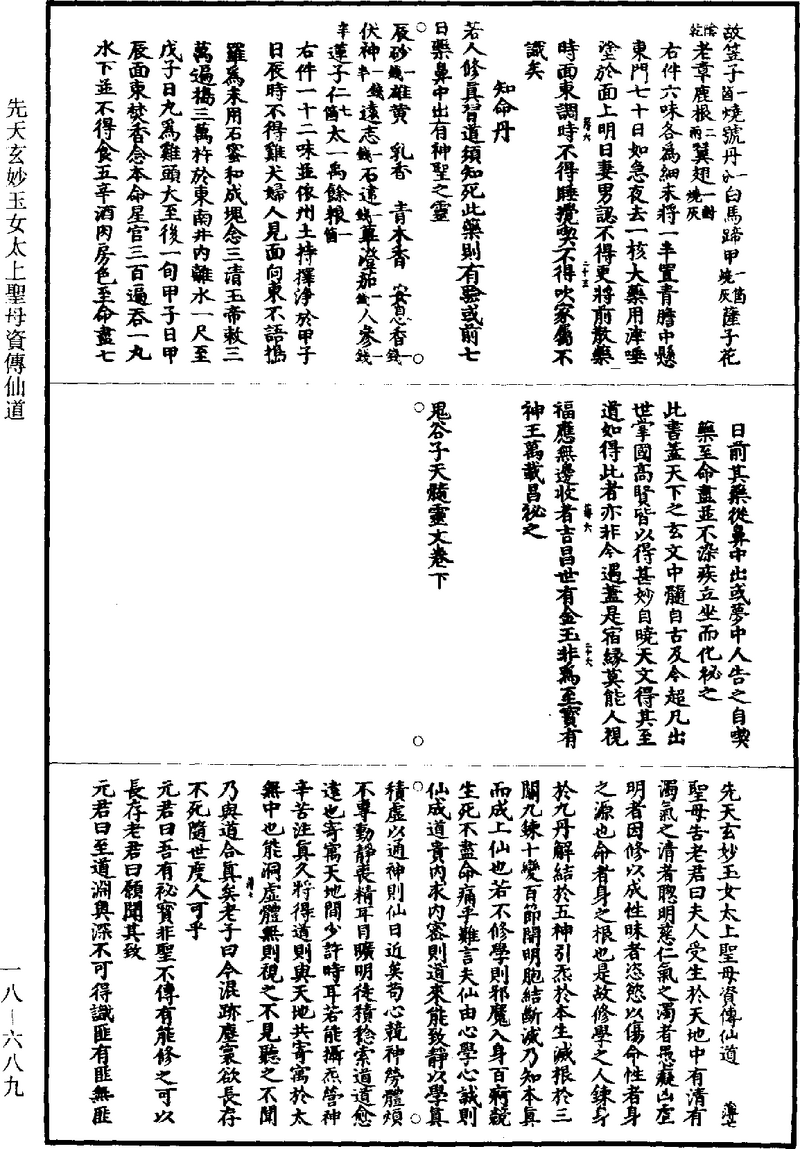 故笠子一箇燒號丹一分白馬蹄甲一箇燒灰薩子花
陰乾老章鹿根二兩翼翅一對燒灰
右件六味各爲細末將一半置青膽中懸
東門七十日如急夜去一核大藥用津唾
塗於面上明日妻男認不得更將前散藥
時面東調時不得睡攪喫不得吹家屬不
識矣
知命丹
若人修眞習道須知死此藥則有驗或前七
日藥鼻中出有神聖之靈
辰砂一錢雄黃 乳香 青木香 安息香一錢
伏神一錢半遠志一錢石蓮一錢蓽澄茄一錢人參一錢
辛蓮子仁七箇太一禹餘粮一箇
右件一十二味並依州土持擇淨於甲子
日辰時不得雞犬婦人見面向東不語搗
羅爲末用石蜜和成塊念三清玉帝敕三
萬遍搗三萬杵於東南井內離水一尺至
戊子日丸爲雞頭大至後一旬甲子日甲
辰面東焚香念本命星官三百遍吞一丸
水下並不得食五辛酒肉房色至命盡七
日前其藥從鼻中出或夢中人告之自喫
藥至命盡並不染疾立坐而化秘之
此書蓋天下之玄文中髓自古及今超凡出
世掌國高賢皆以得甚妙自曉天文得其至
道如得此者亦非今遇蓋是宿緣莫能人視
福應無邊收者吉昌世有金玉非爲至寶有
神王萬載昌秘之
鬼谷子天髓靈文卷下
先天玄妙玉女太上聖母資傳仙道 薄七
聖母告老君曰夫人受生於天地中有清有
濁氣之清者聰明慈仁氣之濁者愚癡凶虐
明者因修以成性昧者恣慾以傷命性者身
之源也命者身之根也是故修學之人鍊身
於九丹解結於五神引炁於本生滅根於三
關九鍊十變百節開明胞結斷滅乃知本眞
而成上仙也若不修學則邪魔入身百痾競
生死不盡命痛乎難言夫仙由心學心誠則
仙成道貴內求內密則道來能致靜以學眞
積虛以通神則仙日近矣苟心競神勞體煩
不專動靜喪精耳目曠明徒積稔索道道愈
遠也寄寓天地間少許時耳若能攝炁營神
辛苦注眞久將得道則與天地共寄寓於太
無中也能洞虛體無則視之不見聽之不聞
乃與道合眞矣老子曰今混跡塵寰欲長存
不死隨世度人可乎
元君曰吾有祕寶非聖不傳有能修之可以
長存老君曰願聞其致
元君曰至道淵奧深不可得識匪有匪無匪
先天玄妙玉女太上聖母資傳仙道
一八—六八九